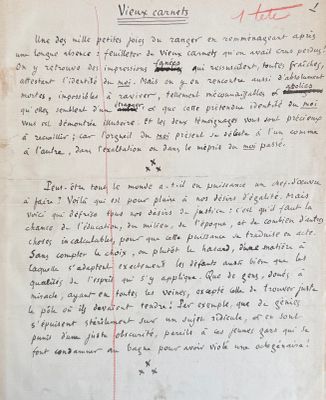 Vieux carnets
1 tête
1
Une des mille petites joies du ranger en remménageant après
une longue absence : feuilleter de vieux carnets qu'on avait crus perdus !
On y retrouve des impressions fanées qui ressuscitent, toutes fraîches,
attestant l'identité du moi. Mais on y en rencontre aussi d'absolument
mortes, impossibles à raviver, tellement méconnaissables & abolies
qu'elles semblent d'un étranger & que cette prétendue identité du moi
vous est démontrée illusoire. Et les deux témoignages vous sont précieux
à recueillir ; car l'orgueil du moi présent se délecte à l'un comme
à l'autre, dans l'exaltation ou dans le mépris du moi passé.
Peut-être tout le monde a-t-il en puissance un chef-d'œuvre
à faire ? Voilà qui est pour plaire à nos désirs d'égalité. Mais
voici qui défrise tous nos désirs de justice : c'est qu'il faut la
chance de l'éducation, du milieu, de l'époque, et de combien d'autres
choses incalculables, pour que cette puissance se traduise en acte.
Sans compter le choix, ou plutôt le hasard, d'une matière à
laquelle s'adaptent exactement les défauts aussi bien que les
qualités de l'esprit qui s'y applique. Que de gens, doués à
miracle, ayant eu toutes les veines, excepté celle de trouver juste
le pôle où ils devaient tendre ! Par exemple, que de génies
s'épuisent stérilement sur un sujet ridicule, et en sont
punis d'une juste obscurité, pareils à ces jeunes gars qui se
font condamner au bagne pour avoir violé une octogénaire !